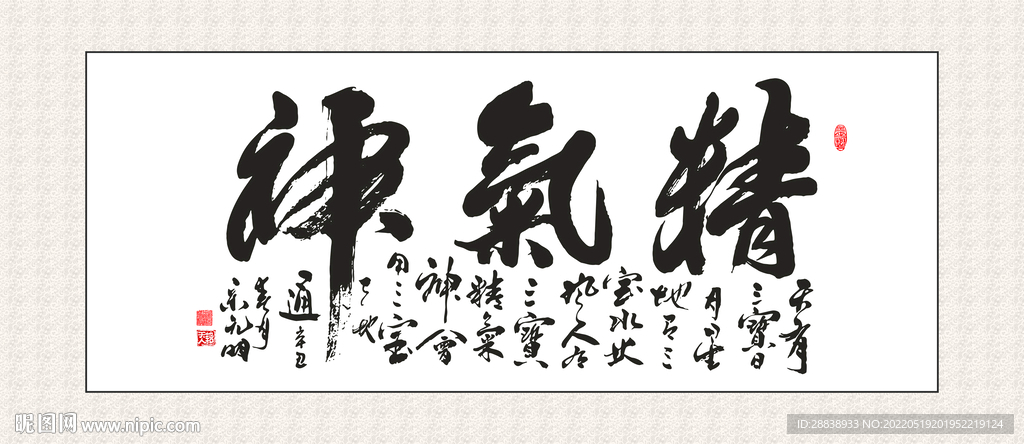 精氣神
天有
三寶日
月星
地有三
宝水火
风人有
三寶
精氣
神會
用三宝
天地
通辛丑
春月
元明
昵图网 www.nipic.com
ID:28838933 NO:20220519201952219124